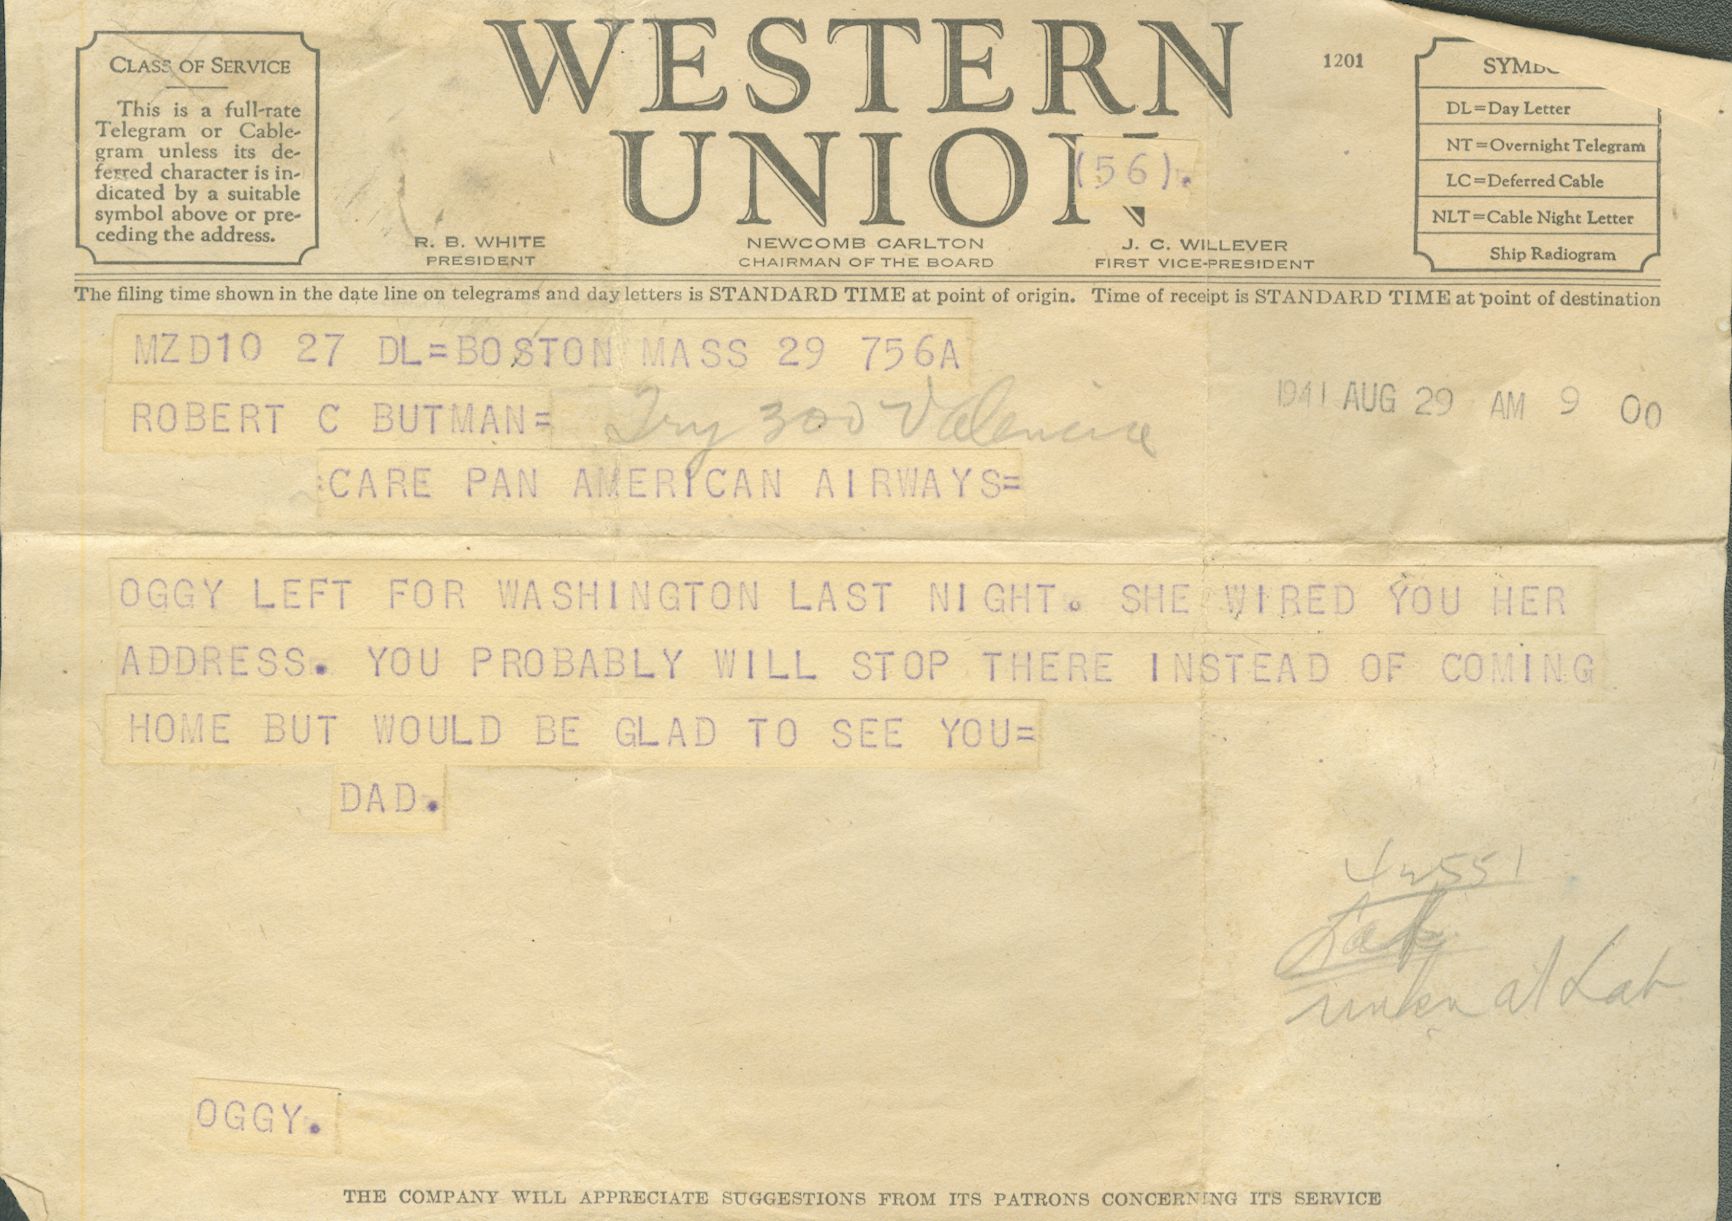 CLASS OF SERVICE
This is a full-rate
Telegram or Cable-
gram unless its de-
ferred character is in-
dicated by a suitable
symbol above or pre-
ceding the address.
WESTERN
UNION
(56).
1201
R. B. WHITE
PRESIDENT
NEWCOMB CARLTON
CHAIRMAN OF THE BOARD
J. C. WILLEVER
FIRST VICE-PRESIDENT
DL=Day Letter
NT=Overnight Telegram
LC=Deferred Cable
NLT=Cable Night Letter
Ship Radiogram
The filing time shown in the date line on telegrams and day letters is STANDARD TIME at point of origin. Time of receipt is STANDARD TIME at point of destination
MZD10 27 DL=BOSTON MASS 29 756A
1941 AUG 29 AM 9 00
ROBERT C BUTMAN= Try 300 Valencia
:CARE PAN AMERICAN AIRWAYS=
OGGY LEFT FOR WASHINGTON LAST NIGHT. SHE WIRED YOU HER
ADDRESS. YOU PROBABLY WILL STOP THERE INSTEAD OF COMING
HOME BUT WOULD BE GLAD TO SEE YOU=
DAD.
at Lab
OGGY.
THE COMPANY WILL APPRECIATE SUGGESTIONS FROM ITS PATRONS CONCERNING ITS SERVICE